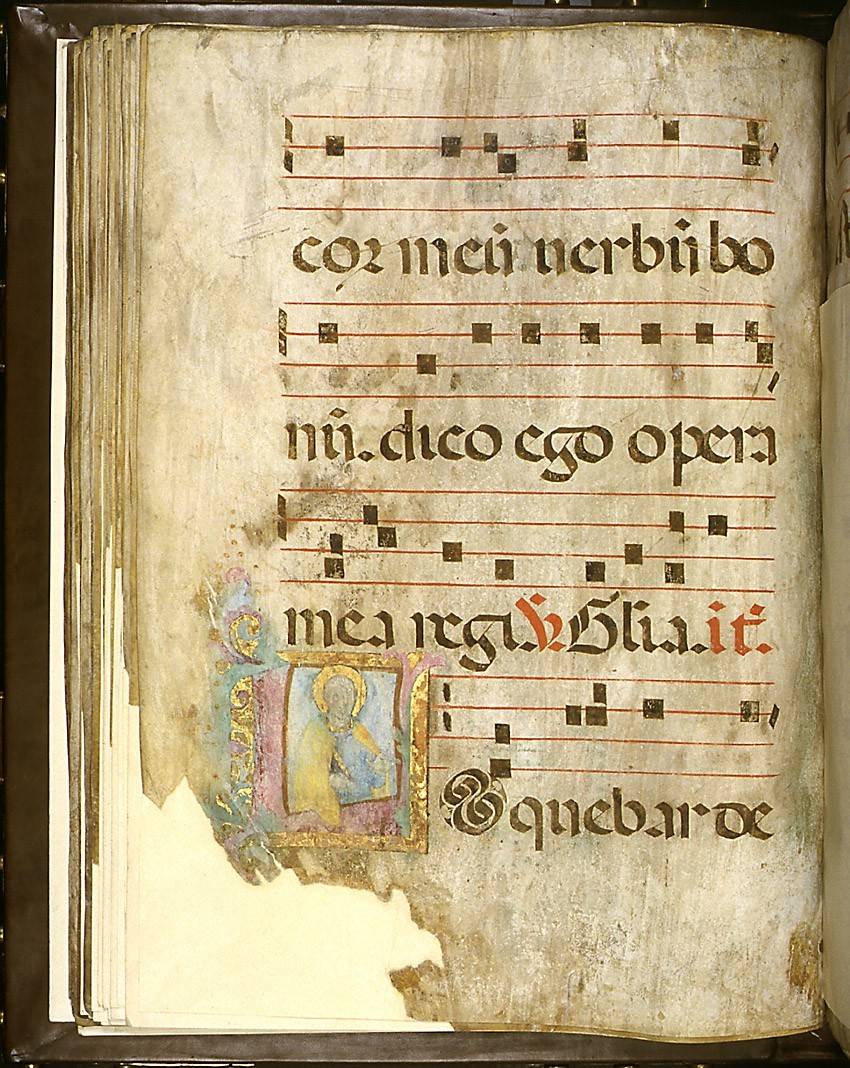 cor meū uerbū bo
nū. dico ego opera
mea regi. ℣. Gl̄ia. it̄.
L Oquebar de